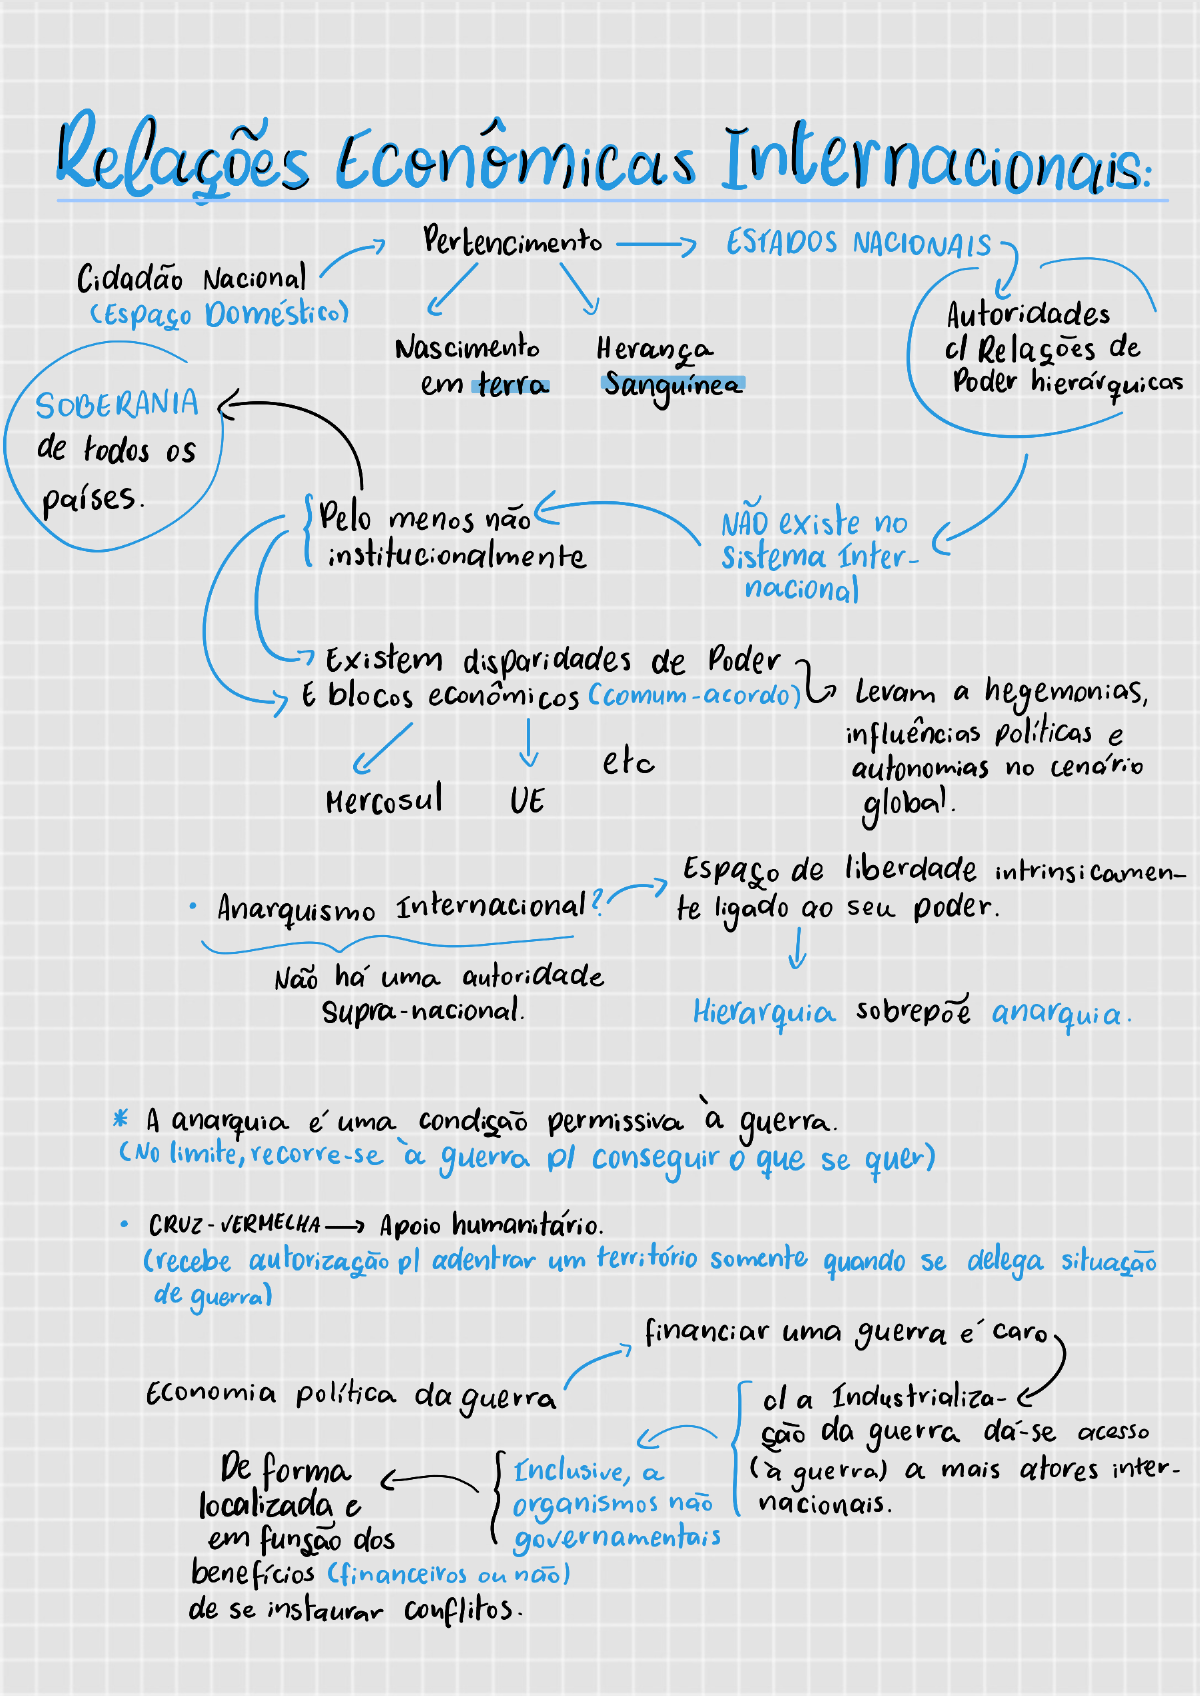 Relações Econômicas Internacionais:
Pertencimento
ESTADOS NACIONAIS
Cidadão Nacional
(Espaço Doméstico)
Nascimento
em terra
Herança
Sanguínea
Autoridades
c/ Relações de
Poder hierárquicas
SOBERANIA
de todos os
países.
Pelo menos não
institucionalmente
NÃO existe no
Sistema Inter-
nacional
Existem disparidades de Poder
E blocos econômicos (comum-acordo)
Levam a hegemonias,
influências políticas e
autonomias no cenário
global.
Mercosul
UE
etc
• Anarquismo Internacional?
Espaço de liberdade intrinsicamen-
te ligado ao seu poder.
Não há uma autoridade
Supra-nacional.
Hierarquia sobrepõe anarquia.
* A anarquia é uma condição permissiva à guerra.
(No limite, recorre-se à guerra p/ conseguir o que se quer)
• CRUZ-VERMELHA → Apoio humanitário.
(recebe autorização p/ adentrar um território somente quando se delega situação
de guerra)
financiar uma guerra é caro
Economia política da guerra
c/ a Industrializa-
ção da guerra dá-se acesso
(à guerra) a mais atores inter-
nacionais.
Inclusive, a
organismos não
governamentais
De forma
localizada e
em função dos
benefícios (financeiros ou não)
de se instaurar conflitos.